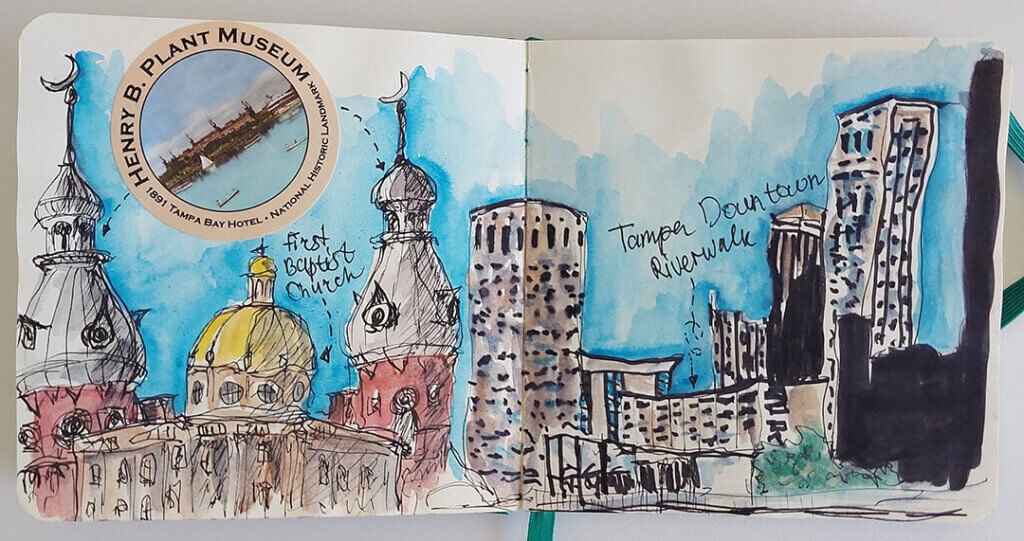 HENRY B. PLANT MUSEUM
1891 TAMPA BAY HOTEL • NATIONAL HISTORIC LANDMARK
First
Baptist
Church
Tampa Downtown
Riverwalk